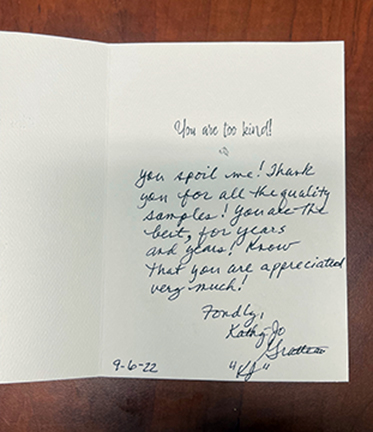 You are too kind!
You spoil me! Thank
you for all the quality
samples! You are the
best, for years
and years! Know
that you are appreciated
very much!
Fondly,
Kathy Jo
"KJ"
9-6-22